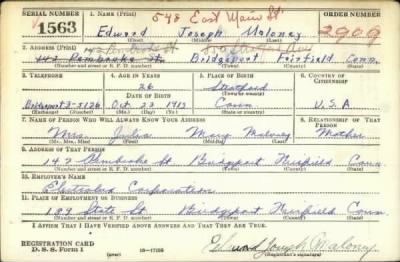 SERIAL NUMBER 1. NAME (Print) 548 East Main St ORDER NUMBER
1563 Edward Joseph Maloney 2909
(First) (Middle) (Last)
2. ADDRESS (Print)
142 Pembroke St. Bridgeport Fairfield Conn.
(Number and street or R. F. D. number) (Town) (County) (State)
3. TELEPHONE 4. AGE IN YEARS 5. PLACE OF BIRTH 6. COUNTRY OF CITIZENSHIP
26 Stratford
DATE OF BIRTH (Town or county)
Bridgeport 3-5126 Oct 23 1913 Conn U.S.A
(Exchange) (Number) (Mo.) (Day) (Yr.) (State or country)
7. NAME OF PERSON WHO WILL ALWAYS KNOW YOUR ADDRESS 8. RELATIONSHIP OF THAT PERSON
Mrs. Julia Mary Maloney Mother
(Mr., Mrs., Miss) (First) (Middle) (Last)
9. ADDRESS OF THAT PERSON
142 Pembroke St Bridgeport Fairfield Conn
(Number and street or R. F. D. number) (Town) (County) (State)
10. EMPLOYER'S NAME
Electrolux Corporation
11. PLACE OF EMPLOYMENT OR BUSINESS
189 State St Bridgeport Fairfield Conn
(Number and street or R. F. D. number) (Town) (County) (State)
I AFFIRM THAT I HAVE VERIFIED ABOVE ANSWERS AND THAT THEY ARE TRUE.
REGISTRATION CARD
D. S. S. Form 1 (over) 16-17105 Edward Joseph Maloney
(Registrant's signature)